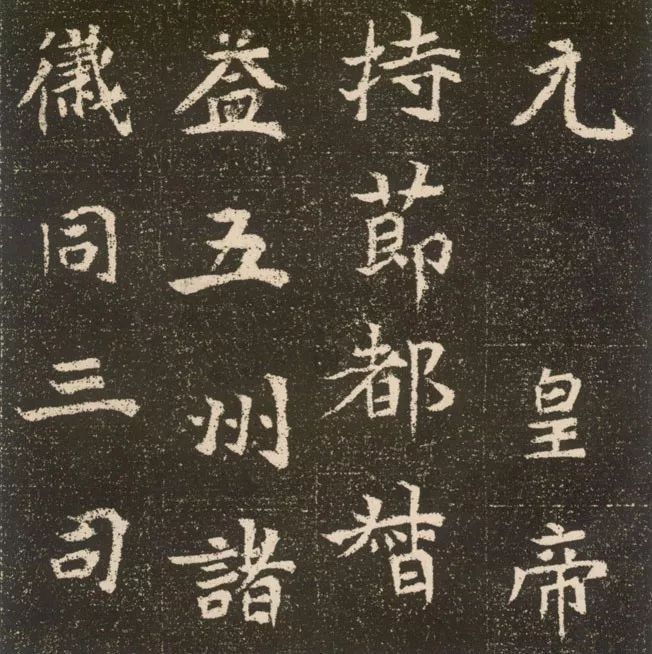 元　皇帝
持節都督
益五州諸
儀同三司